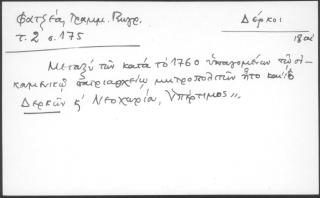 Φατζέα, Γραμμ. Ρωγρ. Δέρκοι
τ. 2 σ. 175 18ος
Μεταξύ τῶν κατά τό 1760 ὑπαγομένων τῷ οἰ-
κουμενικῷ πατριαρχείῳ μητροπολιτῶν ἦτο καί ὁ
Δερκῶν κ' Νεοχωρίου, Ὑπέρτιμος,,